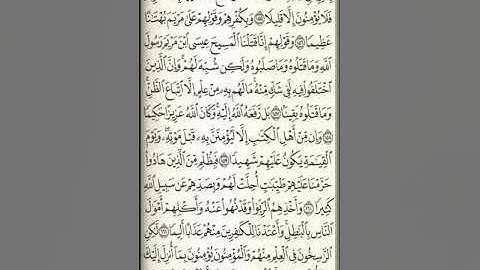 فَلَا يُؤْمِنُونَ إِلَّا قَلِيلًا ١٥٥ وَبِكُفْرِهِمْ وَقَوْلِهِمْ عَلَىٰ مَرْيَمَ بُهْتَٰنًا
عَظِيمًا ١٥٦ وَقَوْلِهِمْ إِنَّا قَتَلْنَا ٱلْمَسِيحَ عِيسَى ٱبْنَ مَرْيَمَ رَسُولَ
ٱللَّهِ وَمَا قَتَلُوهُ وَمَا صَلَبُوهُ وَلَٰكِن شُبِّهَ لَهُمْ وَإِنَّ ٱلَّذِينَ
ٱخْتَلَفُوا۟ فِيهِ لَفِى شَكٍّ مِّنْهُ مَا لَهُم بِهِۦ مِنْ عِلْمٍ إِلَّا ٱتِّبَاعَ ٱلظَّنِّ
وَمَا قَتَلُوهُ يَقِينًۢا ١٥٧ بَل رَّفَعَهُ ٱللَّهُ إِلَيْهِ وَكَانَ ٱللَّهُ عَزِيزًا حَكِيمًا
١٥٨ وَإِن مِّنْ أَهْلِ ٱلْكِتَٰبِ إِلَّا لَيُؤْمِنَنَّ بِهِۦ قَبْلَ مَوْتِهِۦ وَيَوْمَ
ٱلْقِيَٰمَةِ يَكُونُ عَلَيْهِمْ شَهِيدًا ١٥٩ فَبِظُلْمٍ مِّنَ ٱلَّذِينَ هَادُوا۟
حَرَّمْنَا عَلَيْهِمْ طَيِّبَٰتٍ أُحِلَّتْ لَهُمْ وَبِصَدِّهِمْ عَن سَبِيلِ ٱللَّهِ
كَثِيرًا ١٦٠ وَأَخْذِهِمُ ٱلرِّبَوٰا۟ وَقَدْ نُهُوا۟ عَنْهُ وَأَكْلِهِمْ أَمْوَٰلَ
ٱلنَّاسِ بِٱلْبَٰطِلِ وَأَعْتَدْنَا لِلْكَٰفِرِينَ مِنْهُمْ عَذَابًا أَلِيمًا ١٦١ لَّٰكِنِ
ٱلرَّٰسِخُونَ فِى ٱلْعِلْمِ مِنْهُمْ وَٱلْمُؤْمِنُونَ يُؤْمِنُونَ بِمَآ أُنزِلَ إِلَيْكَ